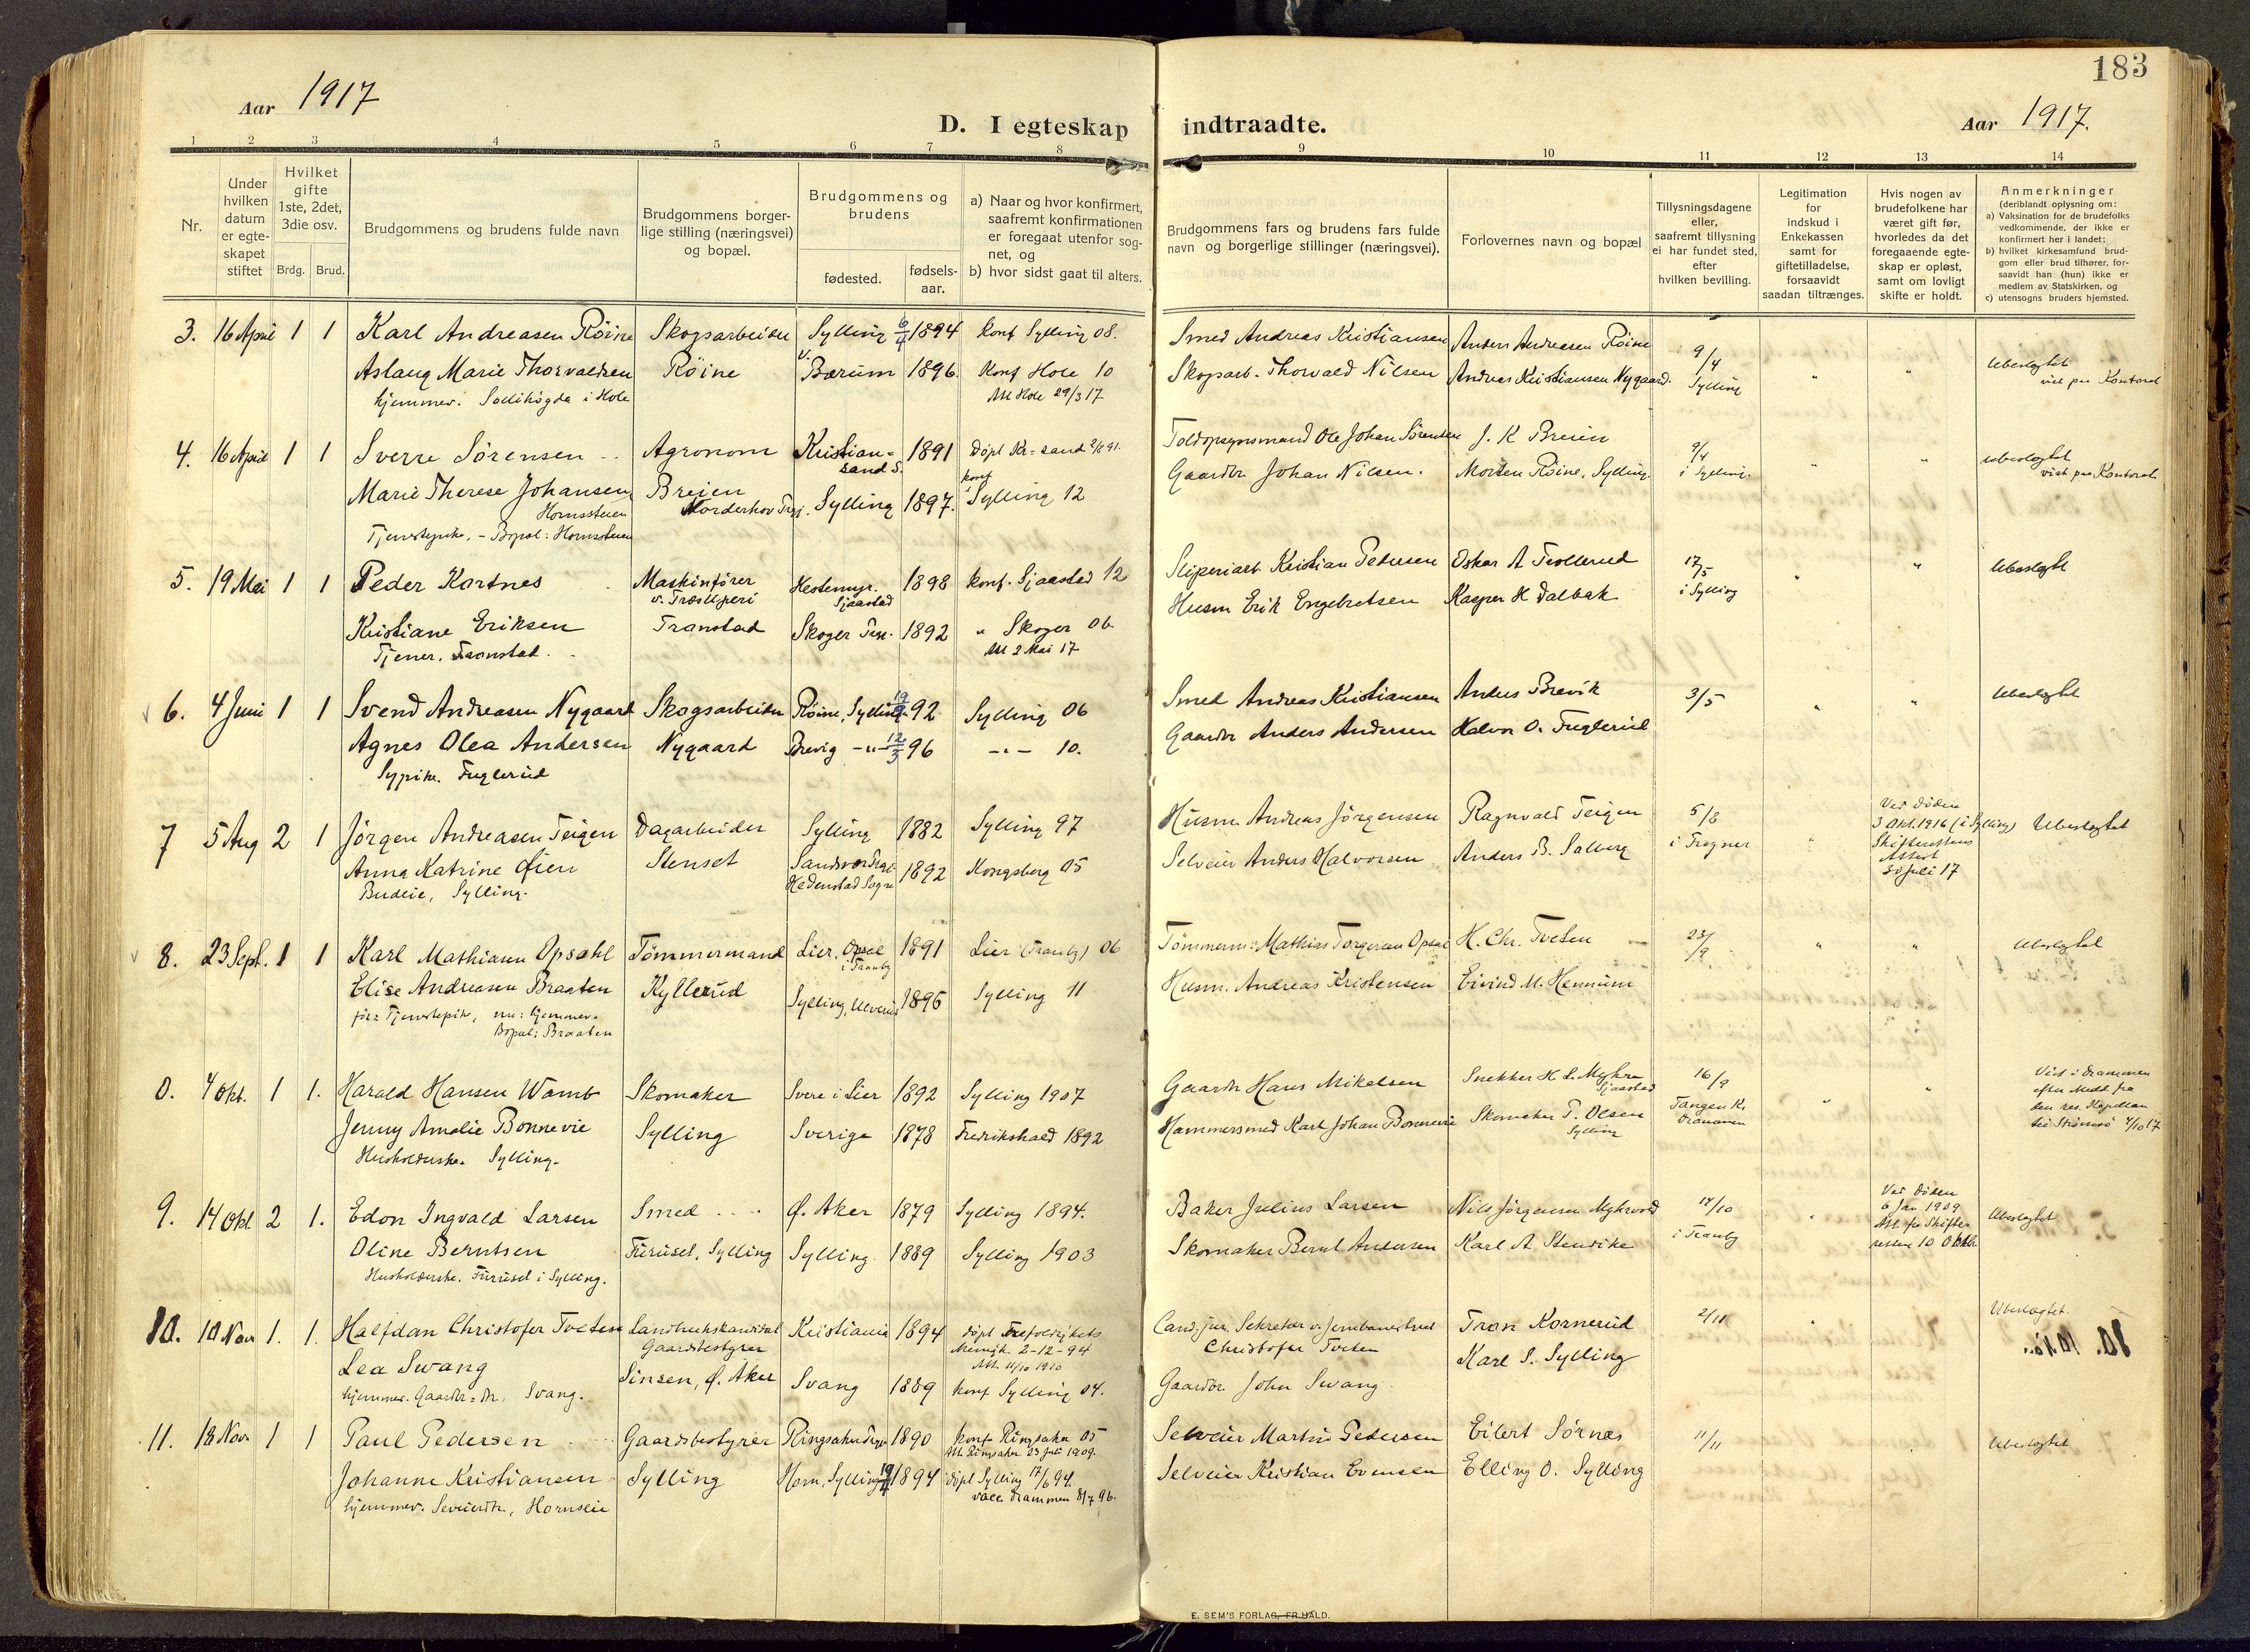 183
Aar 1917
Aar 1917.
D. I egteskap indtraadte.
1 2 3 4 5 6 7 8 9 10 11 12 13 14
Nr.
Under hvilken datum er egteskapet stiftet
Hvilket gifte 1ste, 2det, 3die osv.
Brdg. Brud.
Brudgommens og brudens fulde navn
Brudgommens borgerlige stilling (næringsvei) og bopæl.
Brudgommens og brudens
fødested. fødselsaar.
a) Naar og hvor konfirmert, saafremt konfirmationen er foregaat utenfor sognet, og
b) hvor sidst gaat til alters.
Brudgommens fars og brudens fars fulde navn og borgerlige stillinger (næringsvei).
Forlovernes navn og bopæl
Tillysningsdagene eller, saafremt tillysning ei har fundet sted, efter hvilken bevilling.
Legitimation for indskud i Enkekassen samt for giftetilladelse, forsaavidt saadan tiltrænges.
Hvis nogen av brudefolkene har været gift før, hvorledes da det foregaaende egteskap er opløst, samt om lovligt skifte er holdt.
Anmerkninger (deriblandt oplysning om:
a) Vaksination for de brudefolks vedkommende, der ikke er konfirmert her i landet;
b) hvilket kirkesamfund brudgom eller brud tilhører, forsaavidt han (hun) ikke er medlem av Statskirken, og
c) utensogns bruders hjemsted.
3. 16 April 1 1 Karl Andreasen Röine Skogsarbeider Sylling 6/4 1894 konf Sylling 08. Smed Andreas Kristiansen Anders Andreasen Röine 9/4 Sylling " " Ubeslegtet
Aslaug Marie Thorvaldsen Röine V. Bærum 1896. Konf Hole 10 Skogsarb. Thorvald Nilsen Andreas Kristiansen Nygaard. vist paa Kontoret
hjemmev. Sollihögda i Hole Att Hole 29/3 17
4. 16 April 1 1 Sverre Sørensen Agronom Kristiansand S. 1891 Döpt Kr-sand 91. Toldopsynsmand Ole Johan Sørensen J. K Breien 9/4 i Sylling. " " Ubeslegtet
Marie Therese Johansen Hornssteien Breien Norderhov Prgj. Sylling 1897. konf Sylling 12 Gaardbr Johan Nilsen. Morten Röine, Sylling. vist paa Kontoret
Tjenestepike. - Bopæl: Hornssteien
5. 19 Mai 1 1 Peder Kortnes Maskinfører v. Træsliperi Hestemyr. Sjaastad 1898 konf. Sjaastad 12 Sliperiarb Kristian Pedersen Oskar A Trollerud 17/5 i Sylling " " Ubeslegtet
Kristiane Eriksen Transtad Skoger Prgj. 1892 " Skoger 06. Husm Erik Engebretsen Kasper H Dalbak
Tjener. Transtad. Att 2 Mai 17
6. 4 Juni 1 1 Svend Andreasen Nygaard Skogsarbeider Röine, Sylling 92 Sylling 06 Smed Andreas Kristiansen Anders Brevik 3/5 " " Ubeslegtet
Agnes Olea Andersen Nygaard Brevig -"- 12/3 96 -"- 10. Gaardbr Anders Andersen Halvor O. Fuglerud
Sypike. Fuglerud
7 5 Aug 2 1 Jörgen Andreasen Teigen Dagarbeider Sylling 1882 Sylling 97 Husm Andreas Jörgensen Ragnvald Teigen 5/8 i Frogner " Ved döden 3 Okt. 1916 (i Sylling) Skifterettens Attest 30 Juli 17 Ubeslegtet
Anna Katrine Øien Stenset Sandsvær Prgj. Hedenstad Sogn 1892 Kongsberg 05 Selveier Anders Halvorsen Anders B. Solberg
Budeie, Sylling.
8. 23 Sept. 1 1 Karl Mathisen Opsahl Tømmermand Lier, Opsal i Tranby 1891 Lier (Tranby) 06 Tömmerm: Mathias Torgersen Opsal H. Chr. Tveten 23/9 " " Ubeslegtet
Elise Andreasen Braaten Kyllerud Sylling, Ulverud 1895 Sylling 11 Husm. Andreas Kristensen Eivind M. Hennum
før: Tjenestepike, nu: hjemmev. Bopæl: Braaten
0. 4 Okt. 1 1. Harald Hansen Wamb Skomaker Svere i Lier 1892 Sylling 1907 Gaardbr Hans Mikelsen Snekker H L. Myhre Sjaastad 16/9 Tangen K. Drammen " " Viet i Drammen efter Medd. fra den res. Kapellan til Strømsø 4/10 17
Jenny Amalie Bonnevie Sylling Sverige 1878 Fredrikshald 1892 Hammersmed Karl Johan Bonnevie Skomaker P. Olsen Sylling
Husholderske. Sylling.
9. 14 Okt 2 1. Edon Ingvald Larsen Smed Ø. Aker 1879 Sylling 1894. Baker Julius Larsen Nils Jörgensen Myhrvold 14/10 i Tranby " Ved döden 6 Jan 1909 Att fra Skifteretten 10 Oktbr. Ubeslegtet
Oline Berntsen Furuset, Sylling Sylling. 1889 Sylling 1903 Skomaker Bernt Andersen Karl A Stendike
Husholderske. Furuset i Sylling.
10. 10 Nov 1. 1. Halfdan Christofer Tveten Landbrukskandidat Gaardsbestyrer Kristiania 1894 döpt Trefoldighets Menigh. 2-12-94 Att. 11/10 1910 Cand. jur. Sekretær v. Jernbanestyret Christofer Tveten Tron Kornerud 2/11 Ubeslegtet.
Lea Svang Sinsen, Ø. Aker Svang 1889 konf Sylling 04. Gaardbr John Svang Karl S. Sylling
hjemmev. Gaardbr=dtr. Svang.
11. 18 Nov 1 1 Paul Pedersen Gaardsbestyrer Ringsaker Prgj 1890 konf Ringsaker 05 Att. Ringsaker 23 Juli 1909. Selveier Martin Pedersen Eilert Sørnæs 11/11 Ubeslegtet
Johanne Kristiansen Sylling Horn, Sylling 1894 döpt Sylling 17/6 94. vacc. Drammen 8/7 96. Selveier Kristian Evensen Elling O. Sylling
hjemmev. Selveierdtr, Hornseie
E. SEM'S FORLAG, FR.HALD.